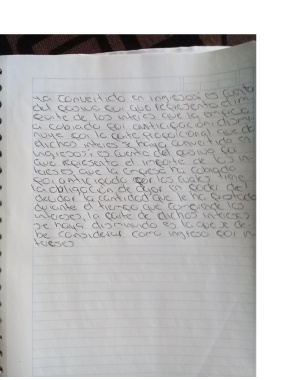 ha convertido en ingresos es cuenta
del pasivo por que representa
parte de los interes que la empresa
a cobrado por anticipacion
nuye por la parte proporcional que de
dichos interes e haya convertido en
ingresos; es cuenta del pasivo
que representa el importe de los in
tereses que la empresa ha cobrado
por anticipado por los cuales tiene
la obligacion de dejar en poder del
deudor la cantidad que le ha prestado
durante el tiempo que comprende los
intereses, la parte de dichos intereses
se haya disminuido es la que se de
be considerar como ingreso por in
tereses